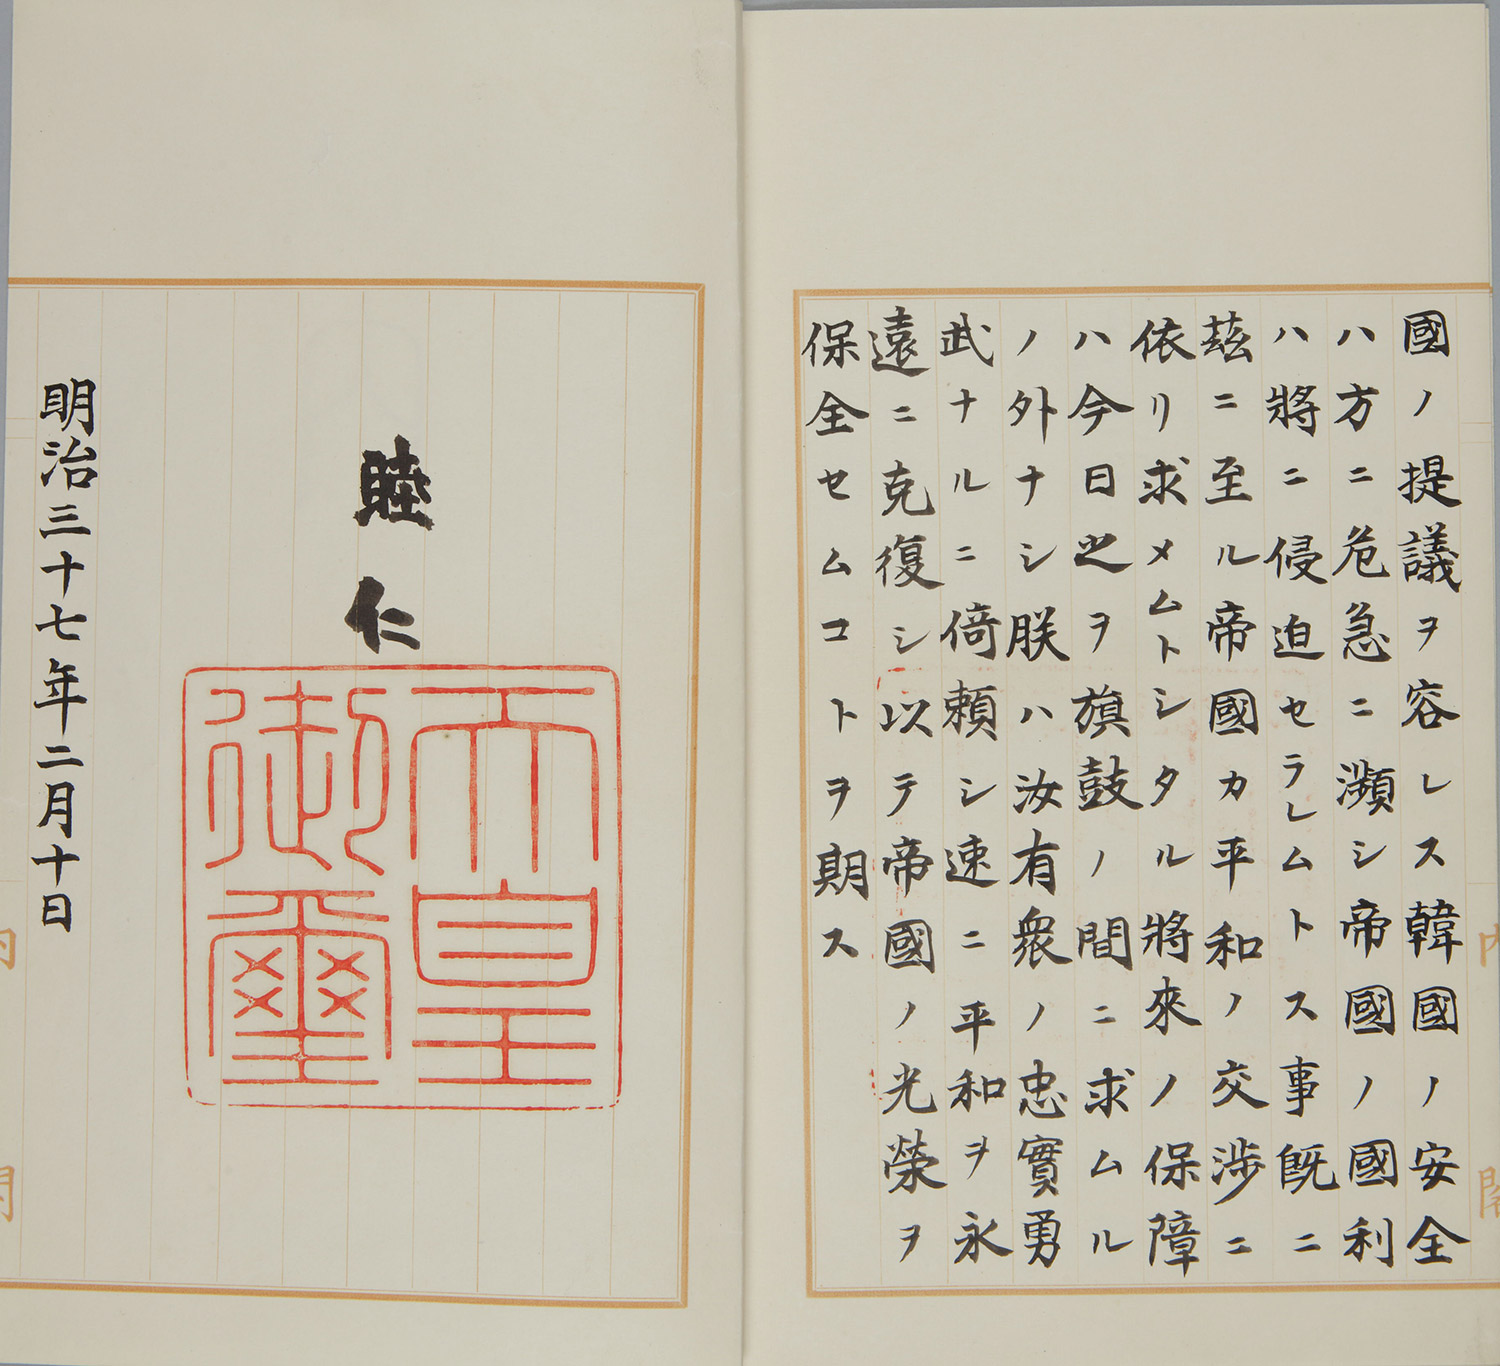 國ノ提議ヲ容レス韓國ノ安全
ハ方ニ危急ニ瀕シ帝國ノ國利
ハ將ニ侵迫セラレムトス事既ニ
茲ニ至ル帝國カ平和ノ交渉ニ
依リ求メムトシタル將來ノ保障
ハ今日之ヲ旗鼓ノ間ニ求ムル
ノ外ナシ朕ハ汝有衆ノ忠實勇
武ナルニ倚頼シ速ニ平和ヲ永
遠ニ克復シ以テ帝國ノ光榮ヲ
保全セムコトヲ期ス
睦仁
天皇
御璽
明治三十七年二月十日
内
閣
内
閣